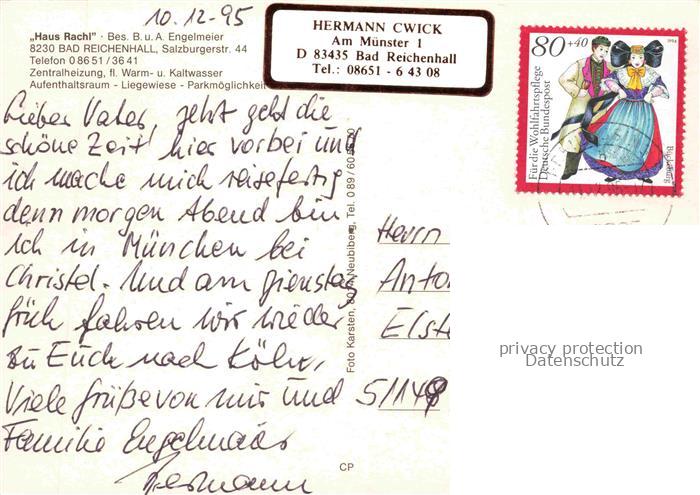 10.12-95
„Haus Rachl" · Bes. B. u. A. Engelmeier
8230 BAD REICHENHALL, Salzburgerstr. 44
Telefon 0 86 51 / 36 41
Zentralheizung, fl. Warm- u. Kaltwasser
Aufenthaltsraum - Liegewiese - Parkmöglichkeit
HERMANN CWICK
Am Münster 1
D 83435 Bad Reichenhall
Tel.: 08651 - 6 43 08
80+40
1994
Für die Wohlfahrtspflege
Deutsche Bundespost
Bückeburg
Lieber Vater, jetzt geht die
schöne Zeit hier vorbei und
ich mache mich reisefertig
denn morgen Abend bin
ich in München bei
Christel. Und am Dienstag
früh fahren wir wieder
zu Euch nach Köln,
Viele Grüße von mir und
Familie Engelmaier
Hermann
Foto Karsten, Neubiberg, Tel. 0 89 /
CP
Herrn
Anto
Elst
privacy protection
Datenschutz